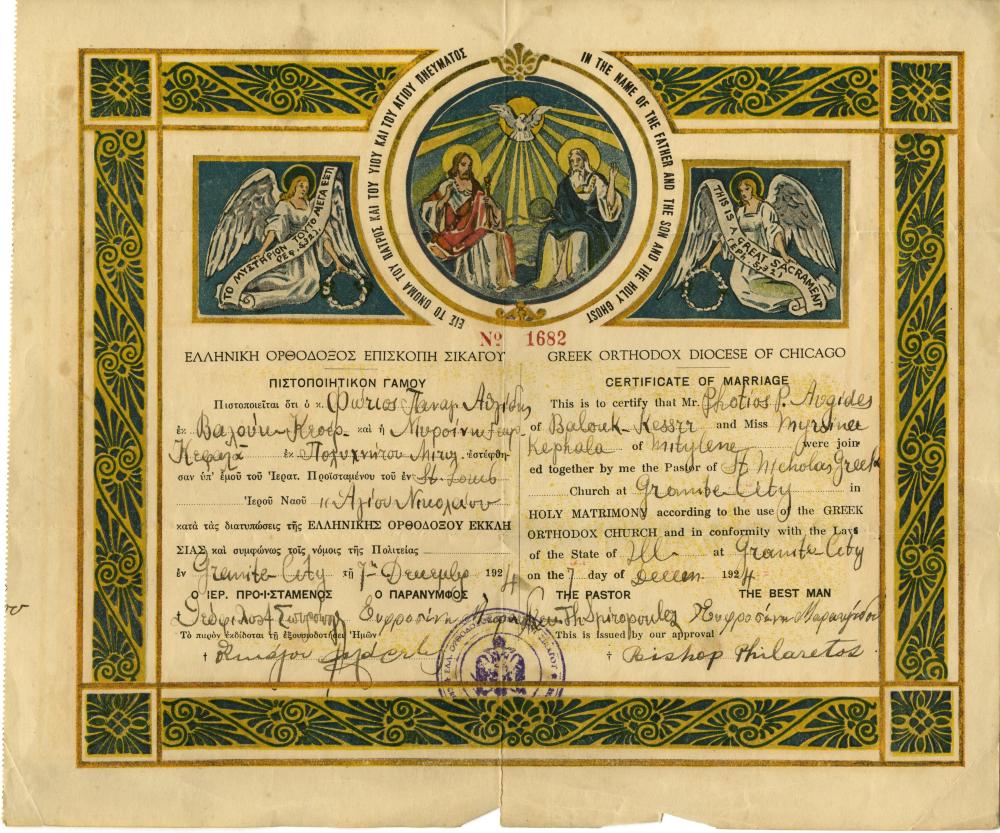 ΕΙΣ ΤΟ ΟΝΟΜΑ ΤΟΥ ΠΑΤΡΟΣ ΚΑΙ ΤΟΥ ΥΙΟΥ ΚΑΙ ΤΟΥ ΑΓΙΟΥ ΠΝΕΥΜΑΤΟΣ
IN THE NAME OF THE FATHER AND THE SON AND THE HOLY GHOST
ΤΟ ΜΥΣΤΗΡΙΟΝ ΤΟΥΤΟ ΜΕΓΑ ΕΣΤΙ
THIS IS A GREAT SACRAMENT
Nº 1682
ΕΛΛΗΝΙΚΗ ΟΡΘΟΔΟΞΟΣ ΕΠΙΣΚΟΠΗ ΣΙΚΑΓΟΥ
ΠΙΣΤΟΠΟΙΗΤΙΚΟΝ ΓΑΜΟΥ
Πιστοποιεῖται ὅτι ὁ κ. Φώτιος Παναγ.
ἐκ Βαλούκ-Κεσέρ. καὶ ἡ Μυρσίνη
Κεφαλᾶ ἐκ Πολυχνίτου Μιτυλ. ἐστέφθη-
σαν ὑπ' ἐμοῦ τοῦ Ἱερατ. Προϊσταμένου τοῦ ἐν St. Louis
Ἱεροῦ Ναοῦ Ἁγίου Νικολάου
κατὰ τὰς διατυπώσεις τῆς ΕΛΛΗΝΙΚΗΣ ΟΡΘΟΔΟΞΟΥ ΕΚΚΛΗ
ΣΙΑΣ καὶ συμφώνως τοῖς νόμοις τῆς Πολιτείας
ἐν Granite City τῇ 7ῃ Δεκεμβρ 1924
Ο ΙΕΡ. ΠΡΟΪΣΤΑΜΕΝΟΣ Ο ΠΑΡΑΝΥΜΦΟΣ
Εὐφροσύνη
Τὸ παρὸν ἐκδίδοται τῇ ἐξουσιοδοτήσει Ἡμῶν
†
GREEK ORTHODOX DIOCESE OF CHICAGO
CERTIFICATE OF MARRIAGE
This is to certify that Mr. Photios P. Avgides
of Balouk-Kesser and Miss Myrsinee
Kephala of Mitylene were join
ed together by me the Pastor of St. Nicholas Greek
Church at Granite City in
HOLY MATRIMONY according to the use of the GREEK
ORTHODOX CHURCH and in conformity with the Laws
of the State of Ill. at Granite City
on the 7 day of Decem. 1924
THE PASTOR THE BEST MAN
Εὐφροσύνη
This is issued by our approval
† Bishop Philaretos